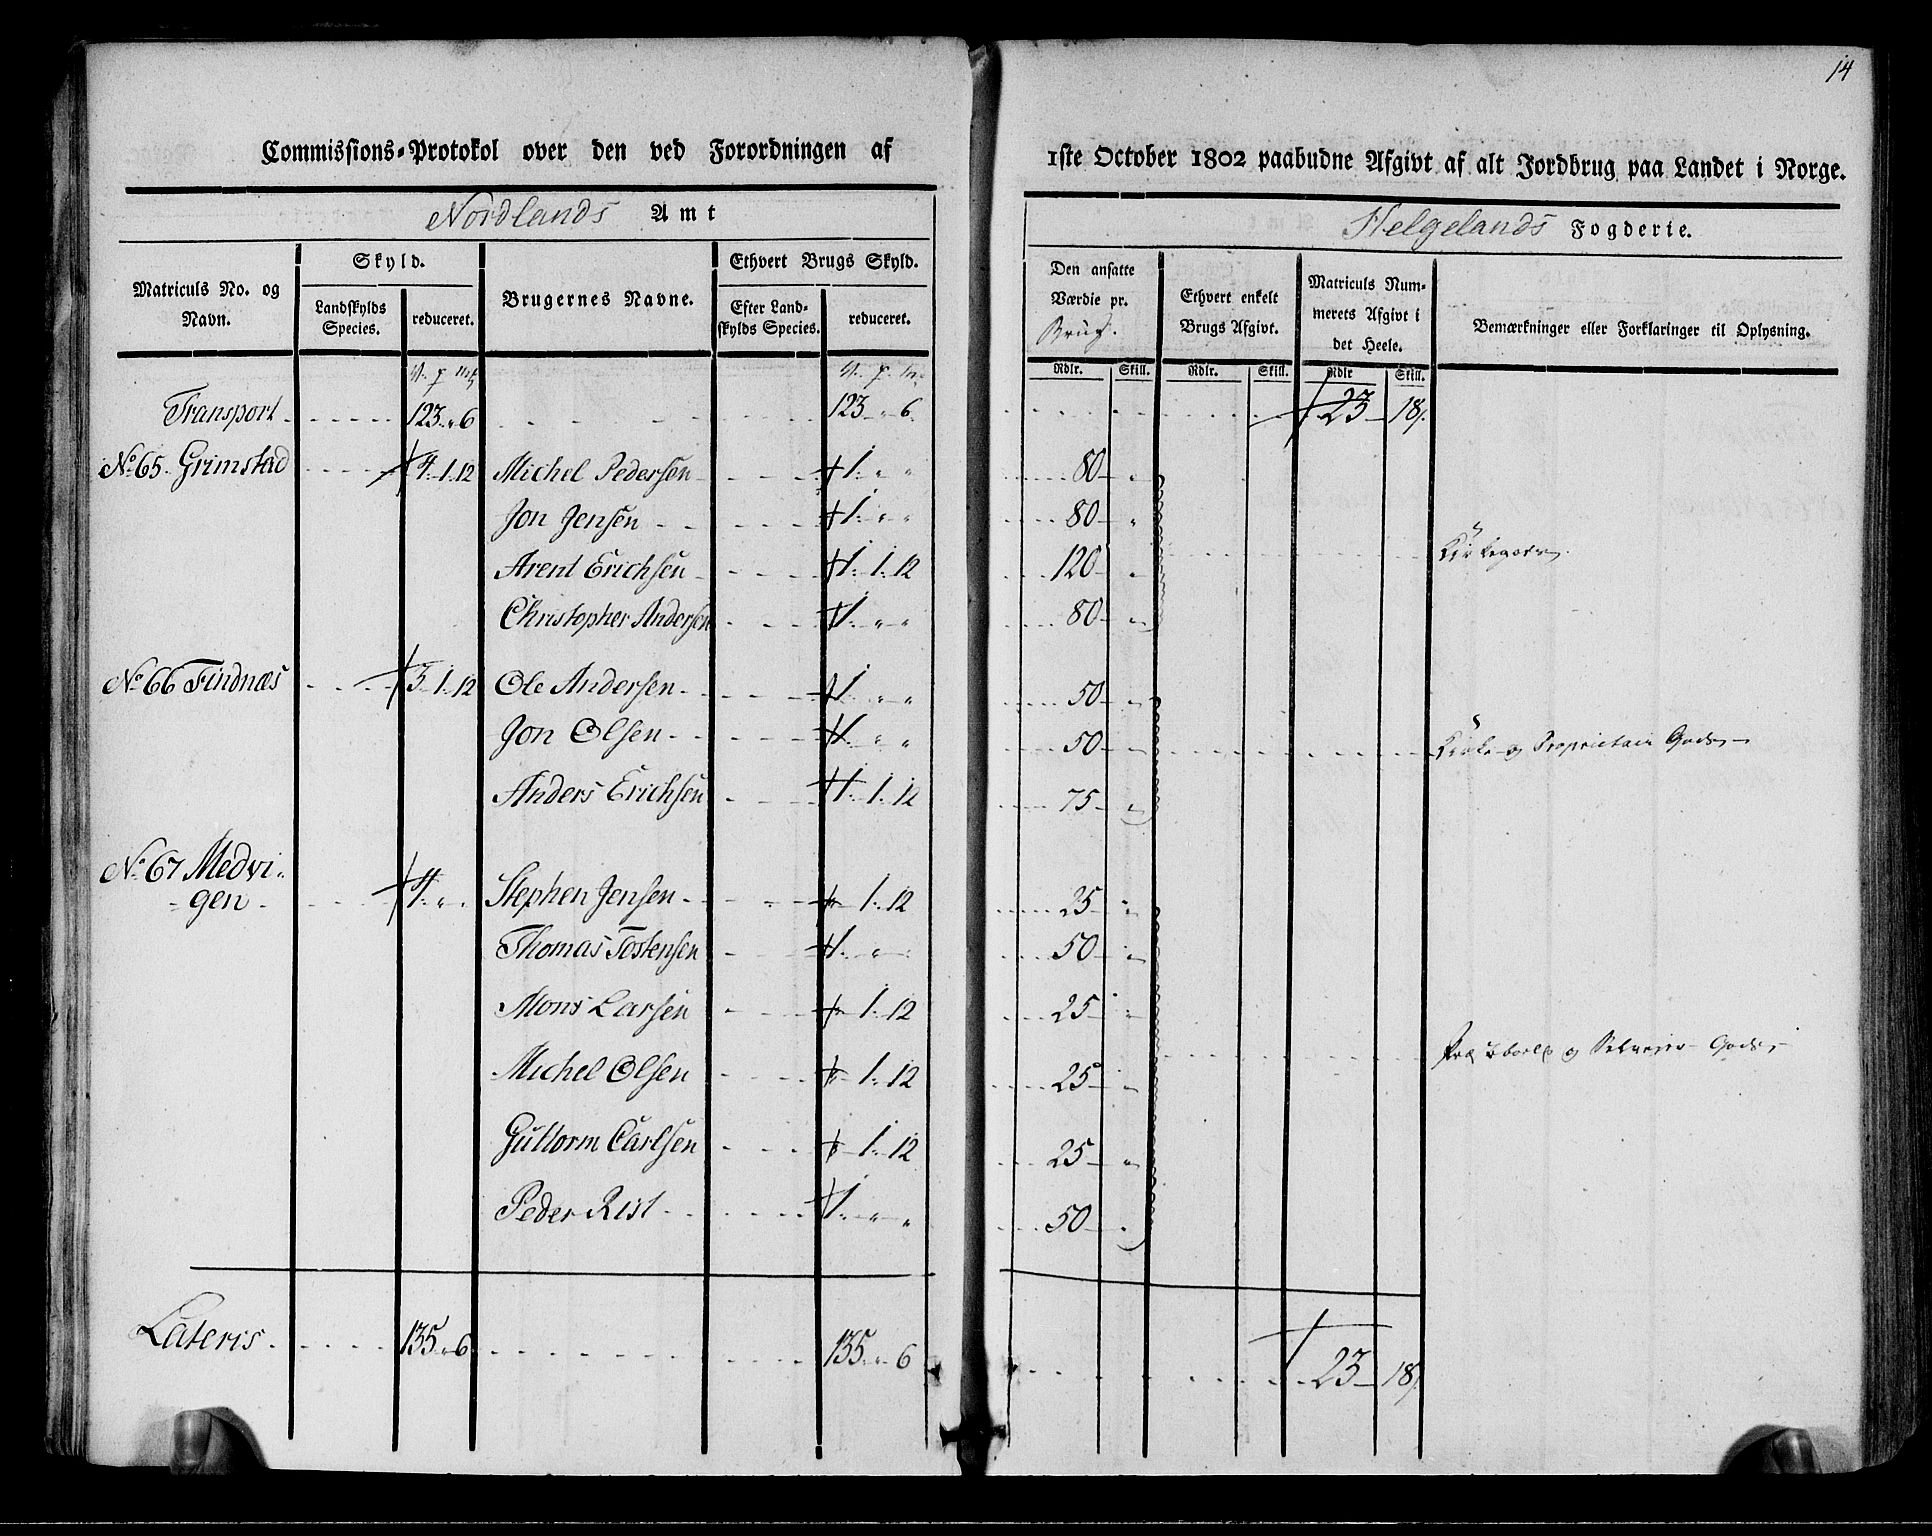 14
Commissions-Protokol over den ved Forordningen af 1ste October 1802 paabudne Afgivt af alt Jordbrug paa Landet i Norge.
Nordlands Amt Helgelands Fogderie.
Matriculs No. og Navn. Skyld. Landskylds Species. reduceret. Brugernes Navne. Ethvert Brugs Skyld. Efter Landskylds Species. reduceret. Den ansatte Værdie pr. Brug. Ethvert enkelt Brugs Afgivt. Matriculs Nummerets Afgivt i det Heele. Bemærkninger eller Forklaringer til Oplysning.
Rdlr. Skill. Rdlr. Skill. Rdlr Skill.
Transport 123 " 6 123 " 6 23 18
No. 65. Grimstad 4 1 12 Michel Pedersen 1 " " 80 "
Jon Jensen 1 " " 80 "
Arent Erichsen 1 1 12 120 "
Christopher Andersen 1 " " 80 "
No. 66 Findnæs 3 1 12 Ole Andersen 1 " " 50 "
Jon Olsen 1 " " 50 " Kirke og Proprietair Gods
Anders Erichsen 1 1 12 75 "
No. 67 Medvigen 4 " " Stephen Jensen " 1 12 25 "
Thomas Tostensen 1 " " 50 "
Mons Larsen " 1 12 25 "
Michel Olsen " 1 12 25 " og Selveier Gods
Guttorm Carlsen " 1 12 25 "
Peder Rist 1 " " 50 "
Lateris 135 " 6 135 " 6 23 18